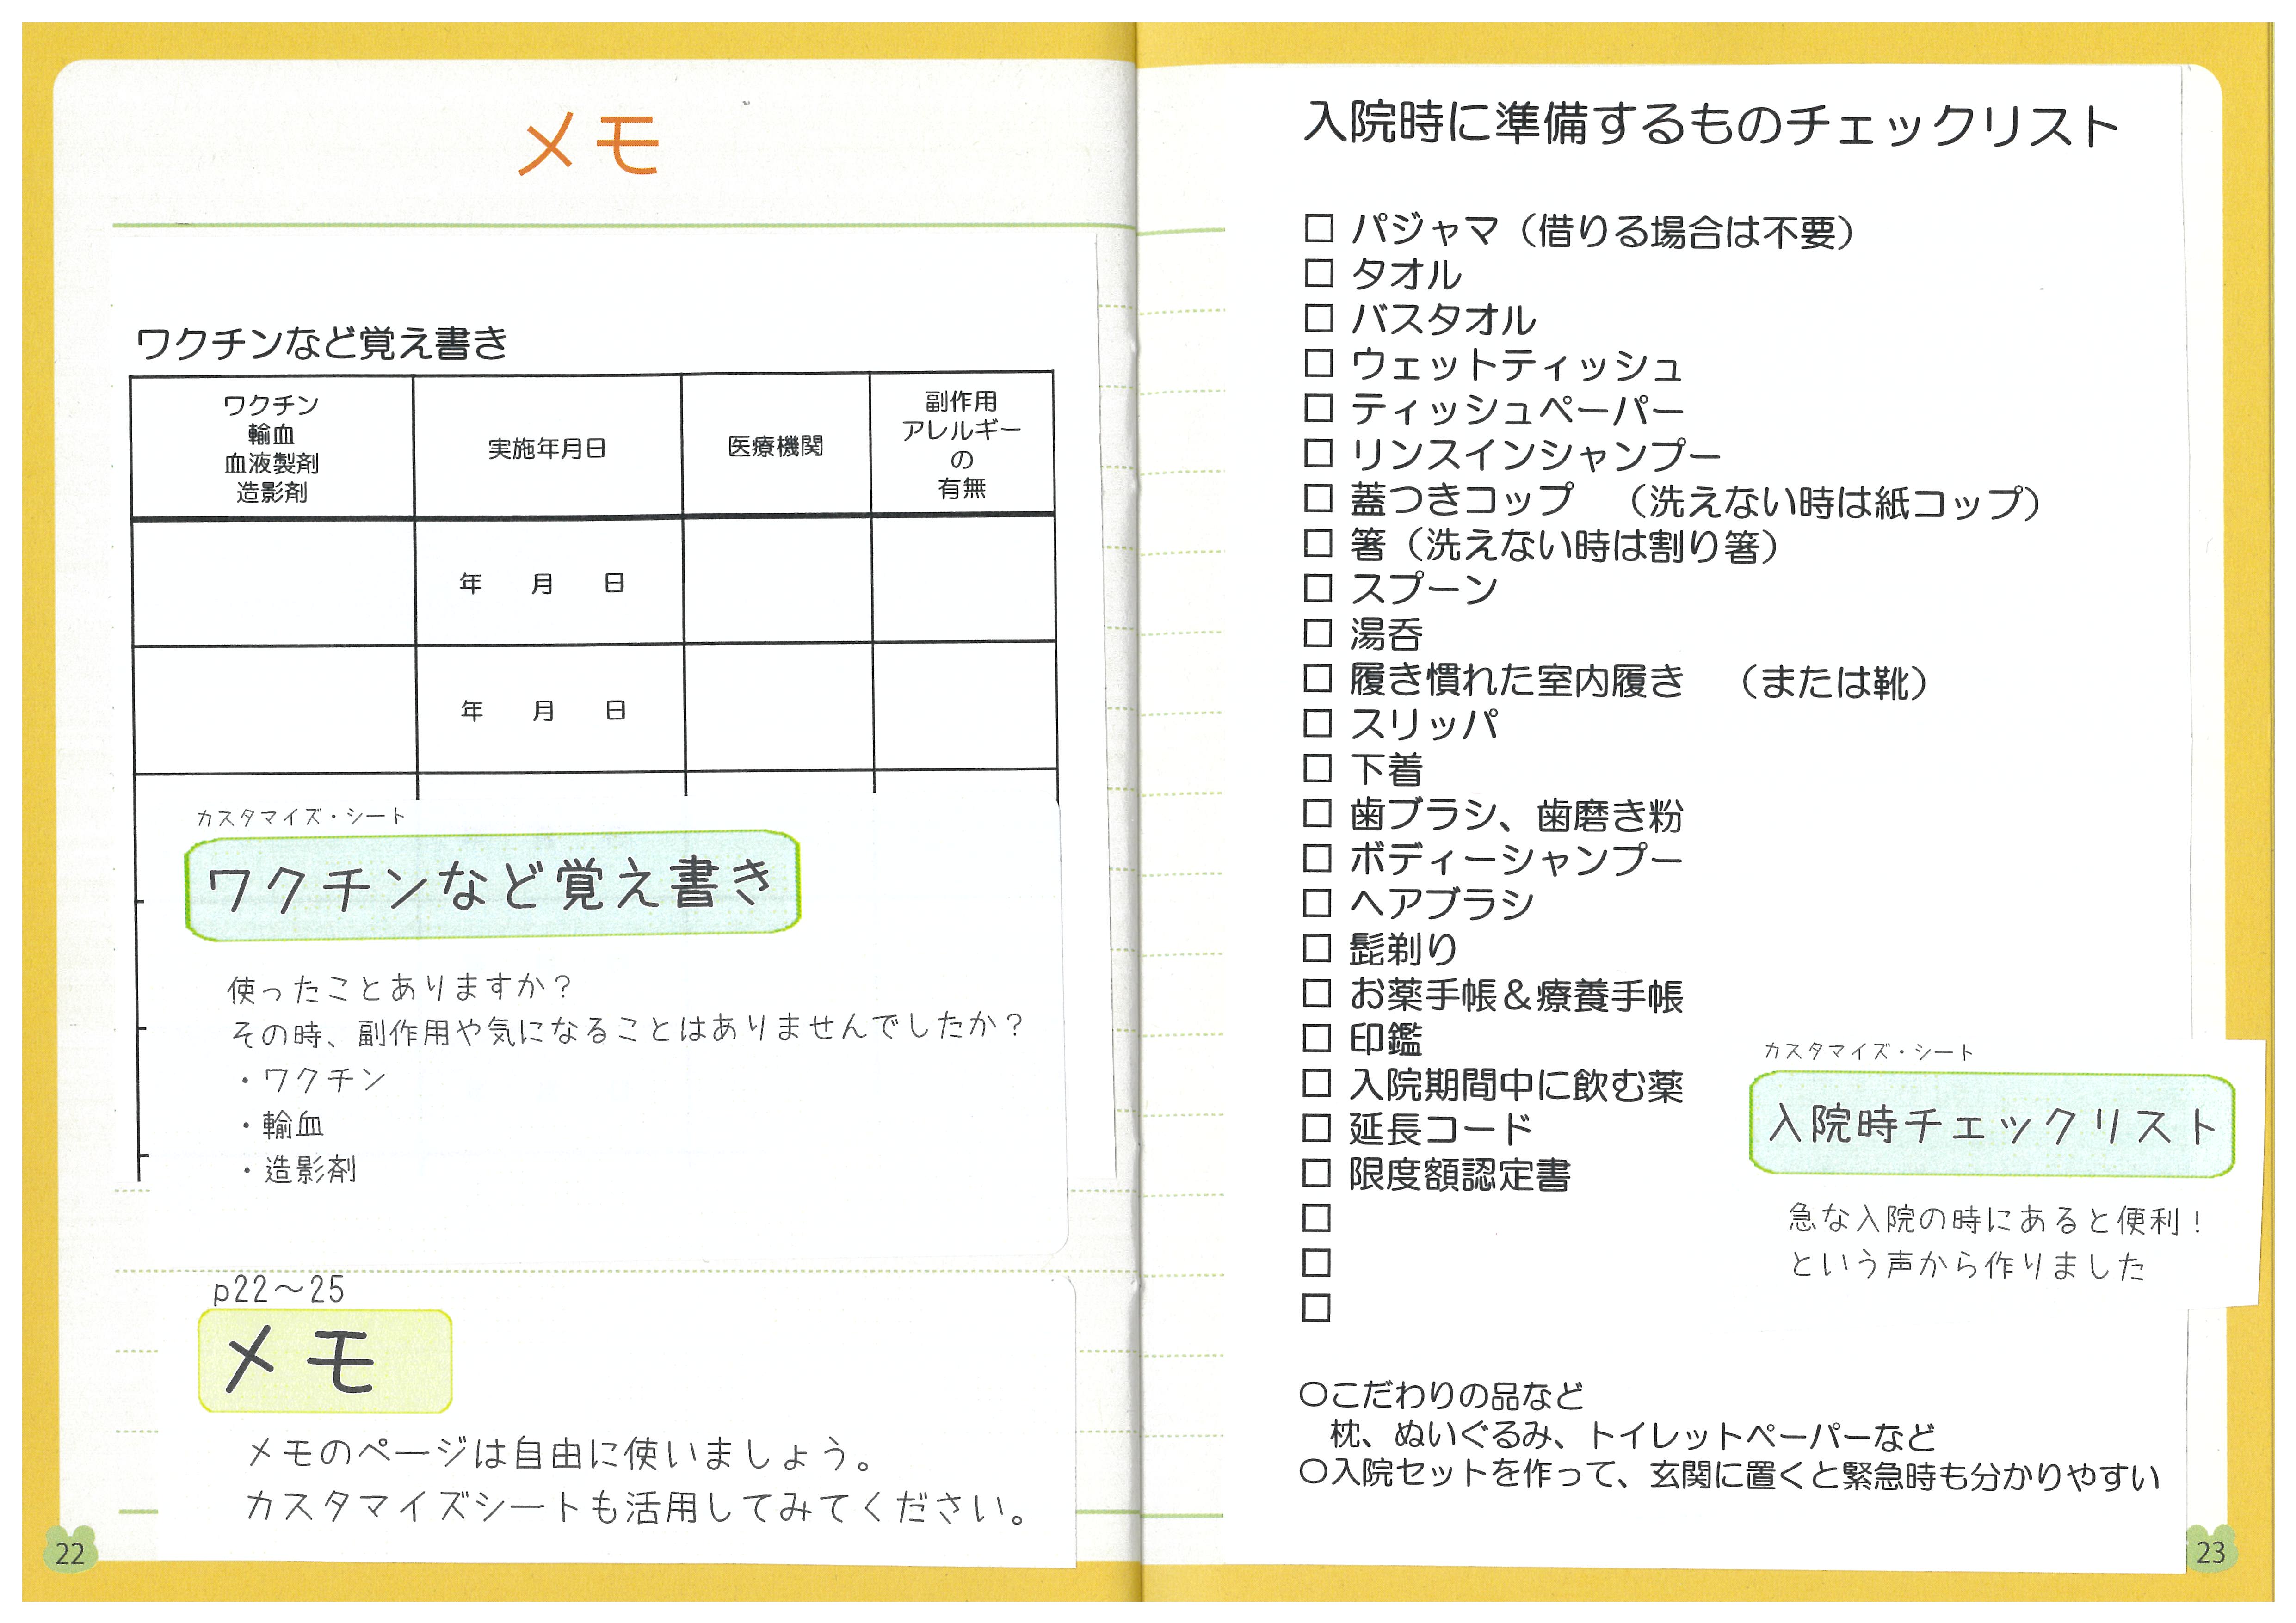 メモ
ワクチンなど覚え書き
ワクチン
輸血
血液製剤
造影剤
実施年月日
医療機関
副作用
アレルギー
の
有無
年 月 日
年 月 日
カスタマイズ・シート
ワクチンなど覚え書き
使ったことありますか？
その時、副作用や気になることはありませんでしたか？
・ワクチン
・輸血
・造影剤
p22～25
メモ
メモのページは自由に使いましょう。
カスタマイズシートも活用してみてください。
22
入院時に準備するものチェックリスト
□ パジャマ（借りる場合は不要）
□ タオル
□ バスタオル
□ ウェットティッシュ
□ ティッシュペーパー
□ リンスインシャンプー
□ 蓋つきコップ　（洗えない時は紙コップ）
□ 箸（洗えない時は割り箸）
□ スプーン
□ 湯呑
□ 履き慣れた室内履き　（または靴）
□ スリッパ
□ 下着
□ 歯ブラシ、歯磨き粉
□ ボディーシャンプー
□ ヘアブラシ
□ 髭剃り
□ お薬手帳＆療養手帳
□ 印鑑
□ 入院期間中に飲む薬
□ 延長コード
□ 限度額認定書
□
□
□
カスタマイズ・シート
入院時チェックリスト
急な入院の時にあると便利！
という声から作りました
〇こだわりの品など
枕、ぬいぐるみ、トイレットペーパーなど
〇入院セットを作って、玄関に置くと緊急時も分かりやすい
23